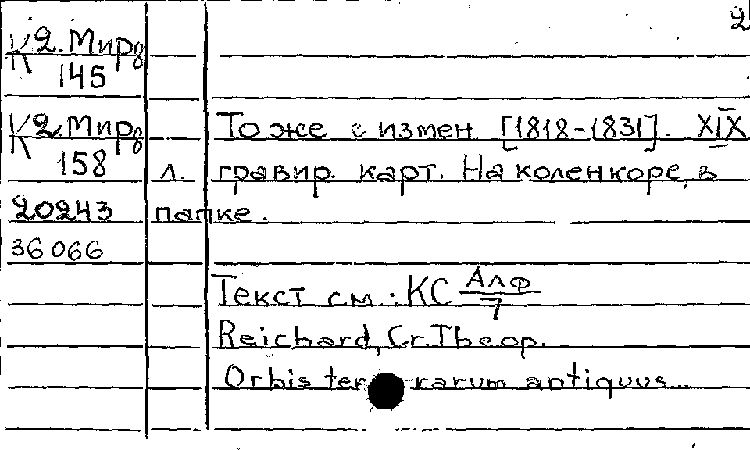 2
К 2. Мир 8
145
К 2. Мир 8
158
20243
36066
То же с измен. [1818-1831]. XIX
л. гравир. карт. На коленкоре, в
папке.
Текст см.: КС Алф/7
Reichard, Cr. Theop.
Orbis terrarum antiquus...